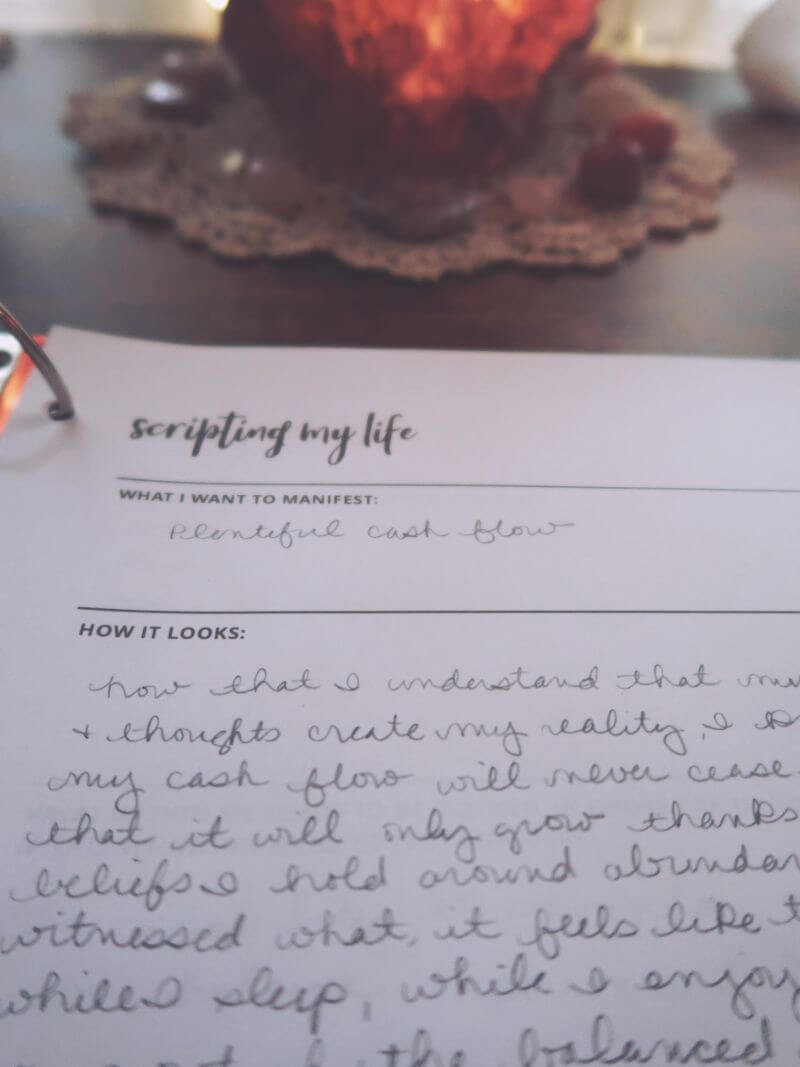 scripting my life
WHAT I WANT TO MANIFEST:
Plentiful cash flow
HOW IT LOOKS:
now that I understand that
+ thoughts create my reality, I
my cash flow will never cease
that it will only grow thanks
beliefs I hold around
witnessed what it feels like
while I sleep, while I enjoy
the balanced